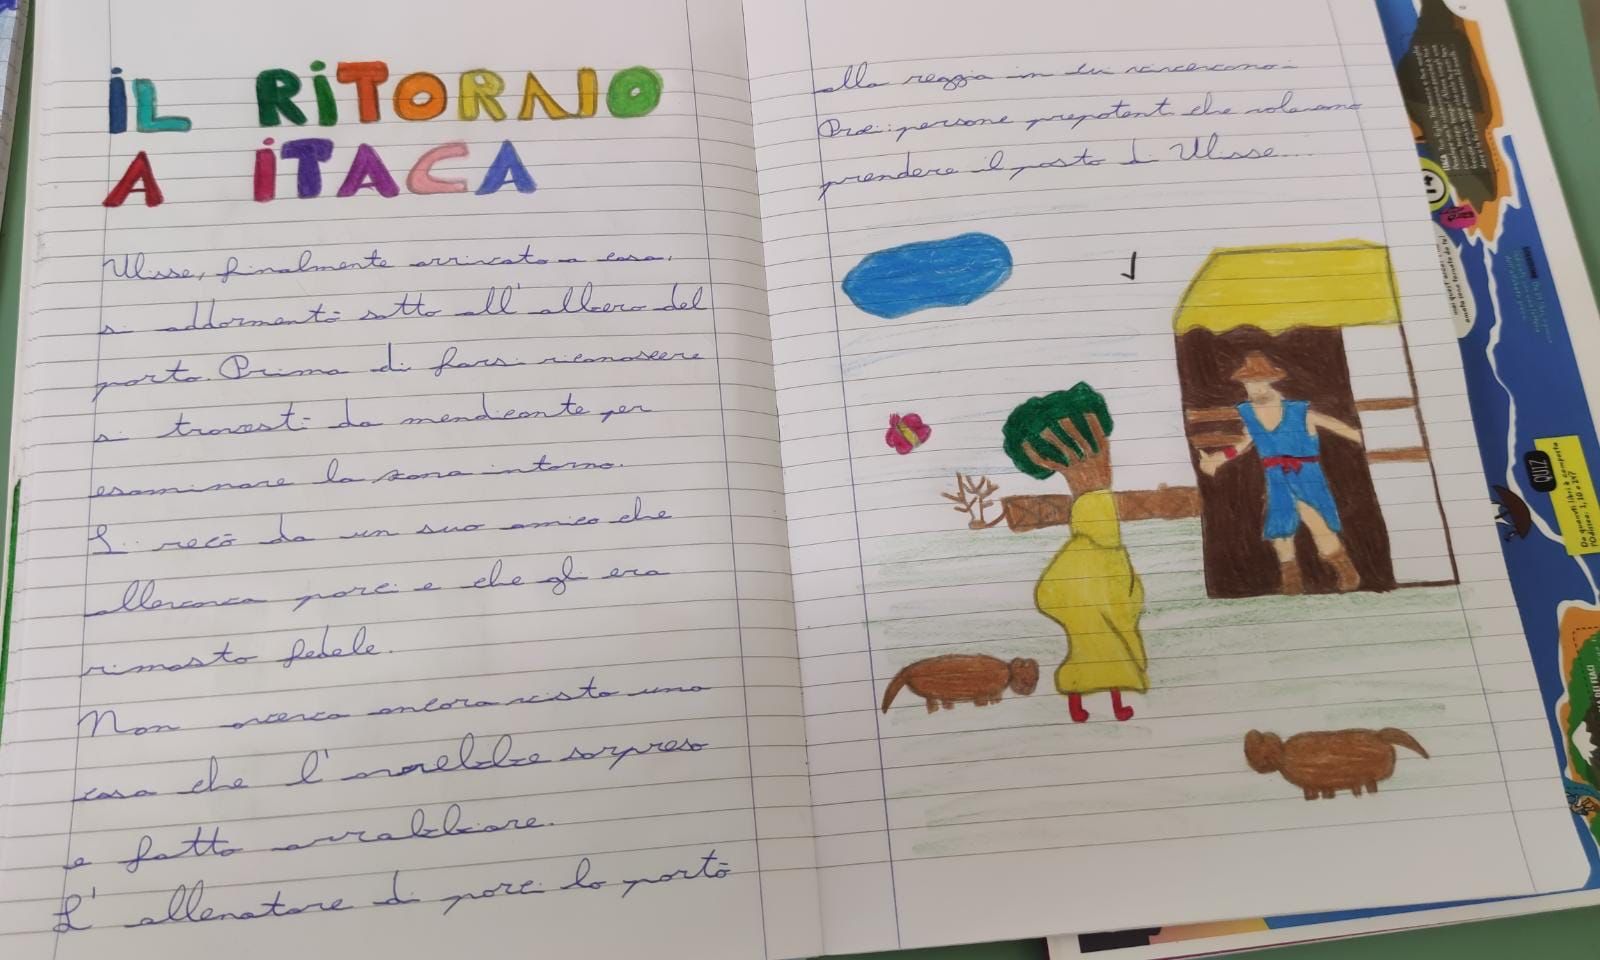 IL RITORNO
A ITACA
Ulisse, finalmente arrivato a casa,
si addormentò sotto all'albero del
porto. Prima di farsi riconoscere
si travestì da mendicante per
esaminare la zona intorno.
Si recò da un suo amico che
allevava porci e che gli era
rimasto fedele.
Non aveva ancora visto una
cosa che l'avrebbe sorpreso
e fatto arrabbiare.
L'allenatore di porci lo portò
alla reggia in cui c'erano i
Proci: persone prepotenti che volevano
prendere il posto di Ulisse...
QUIZ
Da quanti libri è composta
l'Odissea: 1, 10 o 24?
ITACA